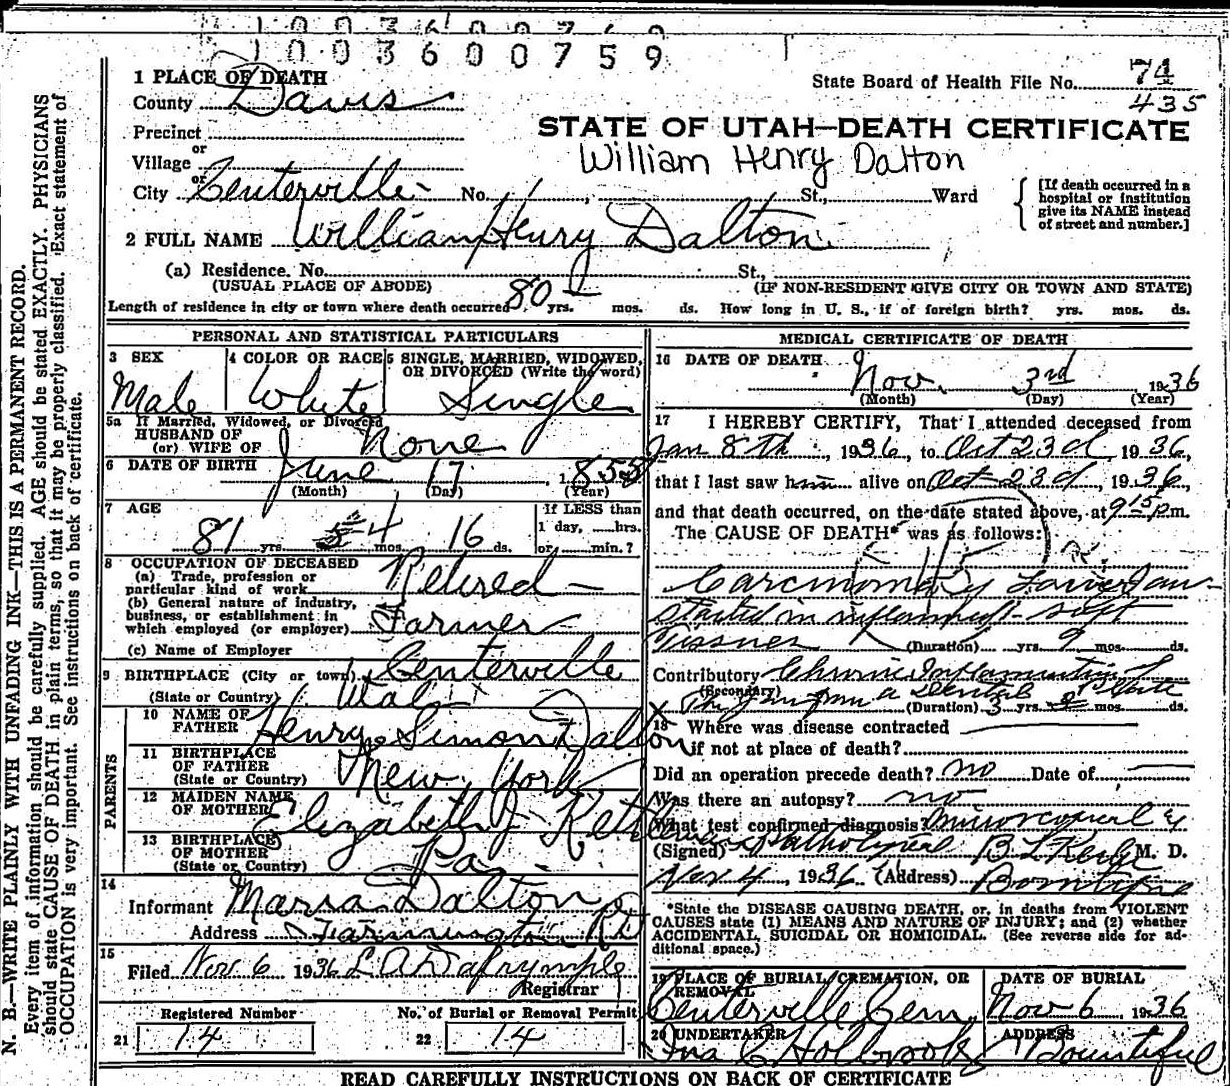 1003600759
1003600759
1 PLACE OF DEATH
County Davis
State Board of Health File No. 74
435
Precinct
or
Village
or
City Centerville No. St., Ward
STATE OF UTAH—DEATH CERTIFICATE
William Henry Dalton
[If death occurred in a hospital or institution give its NAME instead of street and number.]
2 FULL NAME William Henry Dalton
(a) Residence. No. St.,
(USUAL PLACE OF ABODE) (IF NON-RESIDENT GIVE CITY OR TOWN AND STATE)
Length of residence in city or town where death occurred 80 yrs. mos. ds. How long in U. S., if of foreign birth? yrs. mos. ds.
PERSONAL AND STATISTICAL PARTICULARS
3 SEX 4 COLOR OR RACE 5 SINGLE, MARRIED, WIDOWED, OR DIVORCED (Write the word)
Male White Single
5a If Married, Widowed, or Divorced
HUSBAND OF
(or) WIFE OF None
6 DATE OF BIRTH June 17 1855
(Month) (Day) (Year)
7 AGE If LESS than
81 yrs. 4 mos. 16 ds. 1 day, hrs.
or min.?
8 OCCUPATION OF DECEASED
(a) Trade, profession or
particular kind of work Retired
(b) General nature of industry,
business, or establishment in
which employed (or employer) Farmer
(c) Name of Employer
9 BIRTHPLACE (City or town) Centerville
(State or Country) Utah
PARENTS
10 NAME OF FATHER Henry Simon Dalton
11 BIRTHPLACE OF FATHER (State or Country) New York
12 MAIDEN NAME OF MOTHER Elizabeth J
13 BIRTHPLACE OF MOTHER (State or Country) Pa
14
Informant Dalton
Address Farmington
15
Filed Nov 6 1936 Dalrymple
Registrar
Registered Number No. of Burial or Removal Permit
21 14 22 14
MEDICAL CERTIFICATE OF DEATH
16 DATE OF DEATH Nov. 3rd 1936
(Month) (Day) (Year)
17 I HEREBY CERTIFY, That I attended deceased from
Jan 8th, 1936, to Oct 23d, 1936,
that I last saw him alive on Oct 23d, 1936,
and that death occurred, on the date stated above, at 9 15 p.m.
The CAUSE OF DEATH* was as follows:
Carcinoma Lower Jaw
Started in soft
(Duration) yrs. 9 mos. ds.
Contributory Chronic
(Secondary) Dental Plate
(Duration) 3 yrs. mos. ds.
18 Where was disease contracted
if not at place of death?
Did an operation precede death? no Date of
Was there an autopsy? no
What test confirmed diagnosis? microscopical &
(Signed) M. D.
Nov 4, 1936 (Address) Bountiful
*State the DISEASE CAUSING DEATH, or, in deaths from VIOLENT
CAUSES state (1) MEANS AND NATURE OF INJURY; and (2) whether
ACCIDENTAL, SUICIDAL OR HOMICIDAL. (See reverse side for additional space.)
19 PLACE OF BURIAL, CREMATION, OR REMOVAL DATE OF BURIAL
Centerville Cem. Nov 6 1936
20 UNDERTAKER ADDRESS
Holbrook Bountiful
READ CAREFULLY INSTRUCTIONS ON BACK OF CERTIFICATE
N. B.—WRITE PLAINLY WITH UNFADING INK—THIS IS A PERMANENT RECORD.
Every item of information should be carefully supplied. AGE should be stated EXACTLY. PHYSICIANS
should state CAUSE OF DEATH in plain terms, so that it may be properly classified. Exact statement of
OCCUPATION is very important. See instructions on back of certificate.